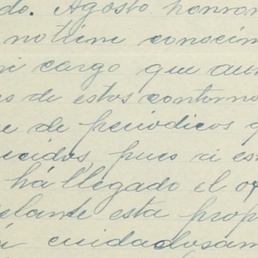 do. Agosto
no tiene conocim
mi cargo que aun
s de estos contorno
e de periodicos q
ucidos, pues si es
há llegado el of
elante esta prop
cuidadosam